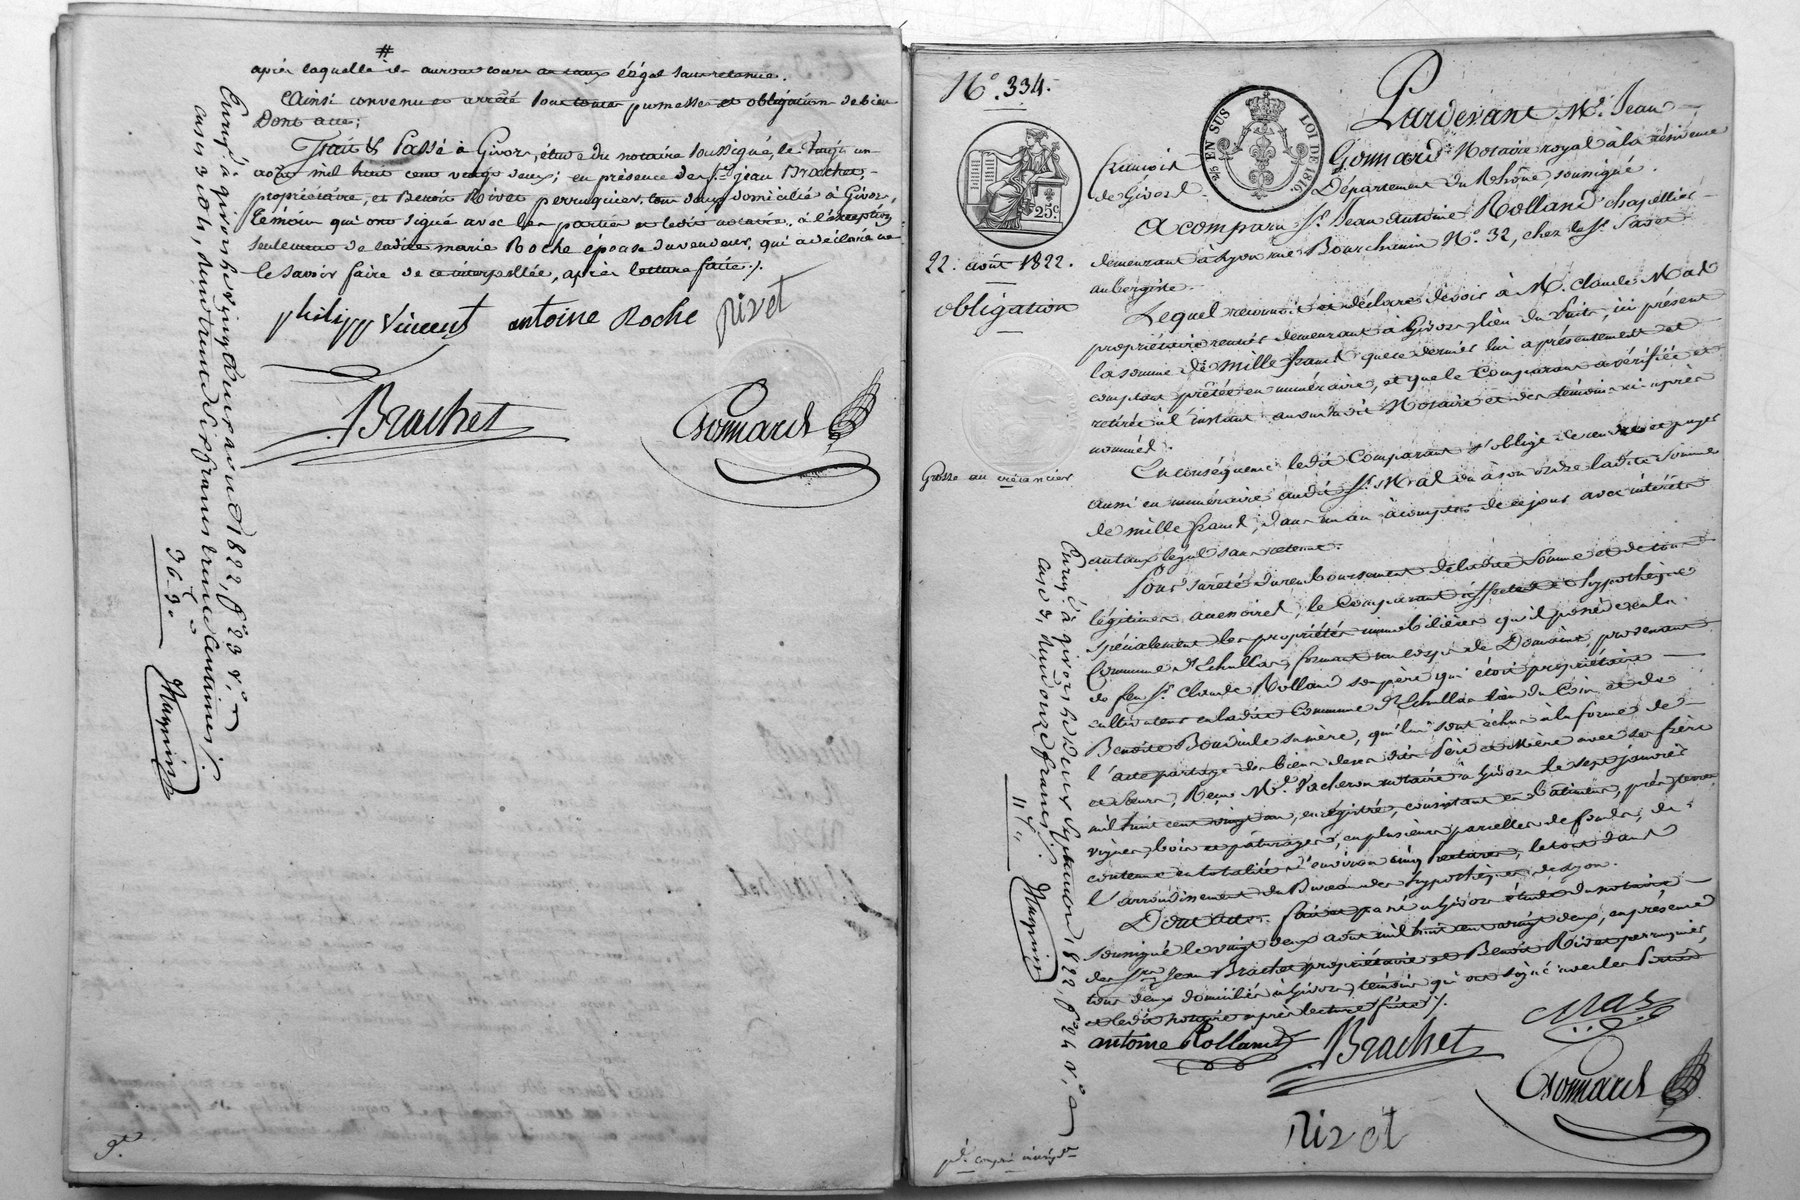 après laquelle il auront cours au taux légal sans retenue.
Ainsi convenu et arrêté sous toute promesse et obligation de bien
Dont acte;
Fait & Passé à Givors, étude du notaire soussigné, le vingt un
août mil huit cent vingt deux; en présence des Srs jean Brachet,
propriétaire, et Benoit Rivet perruquier, tous deux domiciliés à Givors,
témoins qui ont signé avec les parties et ledit notaire, à l'exception
seulement de ladite marie Roche épouse du vendeur, qui a déclaré ne
le savoir faire de ce interpellée, après lecture faite ./.
philipp Vincent antoine Roche Rivet
Brachet Gonnard
Enreg.t à givors le vingt neuf août 1822, f.o 23 v.o
cases 3 et 4, reçu trente six francs trente centimes ./.
36-30
9.e
N.o 334.
25c
25 EN SUS LOI DE 1816
22. août 1822.
obligation
Grosse au créancier
Pardevant M.e Jean
francois Gonnard Notaire royal à la résidence
de Givors Département du Rhône soussigné.
A comparu S.r Jean Antoine Rolland chapellier
demeurant à Lyon rue Bourchanin N.o 32, chez le S.r
aubergiste.
Lequel reconnoit et déclare devoir à M. claude Mas
propriétaire rentier demeurant à Givors, lieu du Puits, ici présent
la somme de mille francs que ce dernier lui a présentement et
comptant prêtée en numéraire, et que le Comparant a vérifiée et
retirée à l'instant au vu dudit Notaire et des témoins ci-après
nommés.
En conséquence ledit Comparant s'oblige de rendre et payer
aussi en numéraire audit S.r Mas ou à son ordre ladite somme
de mille francs, dans un an à compter de ce jour avec intérêts
au taux légal sans retenue.
Pour sureté du remboursement de ladite somme et de tous
légitimes accessoires, le Comparant affecte et hypothèque
spécialement les propriétés immobilières qu'il possède en la
Commune d'Echallas, formant un corps de Domaine, provenant
de feu S.r Claude Rolland son père qui étoit propriétaire
cultivateur en ladite Commune d'Echallas lieu du Coin et de
Benoite sa mère, qu'il lui sont échus à la forme de
l'acte partage des biens de ses dits Père et Mère avec ses frère
et soeurs, Reçu M.e Vacheron notaire à Givors le sept janvier
mil huit cent vingt un, enregistré, consistant en bâtimens, prés, terres
vignes, bois et pâturages, en plusieurs parcelles de fonds, de
contenue en totalité d'environ cinq hectares, le tout dans
l'arrondissement du Bureau des hypothèques de Lyon.
Dont acte. fait et passé à Givors étude du notaire
soussigné le vingt deux août mil huit cent vingt deux, en présence
des Srs Jean Brachet propriétaire et Benoit Rivet perruquier,
tous deux domiciliés à Givors, témoins qui ont signé avec les Parties
et ledit notaire après lecture faite ./.
antoine Rolland Brachet Mas
Gonnard
Rivet
Enreg.t à givors le deux septembre 1822, f.o 24 v.o
case 3, reçu onze francs ./.
11 "